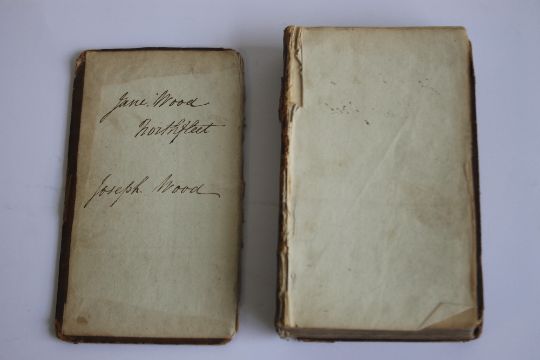 Jane Wood
Northfleet
Joseph Wood